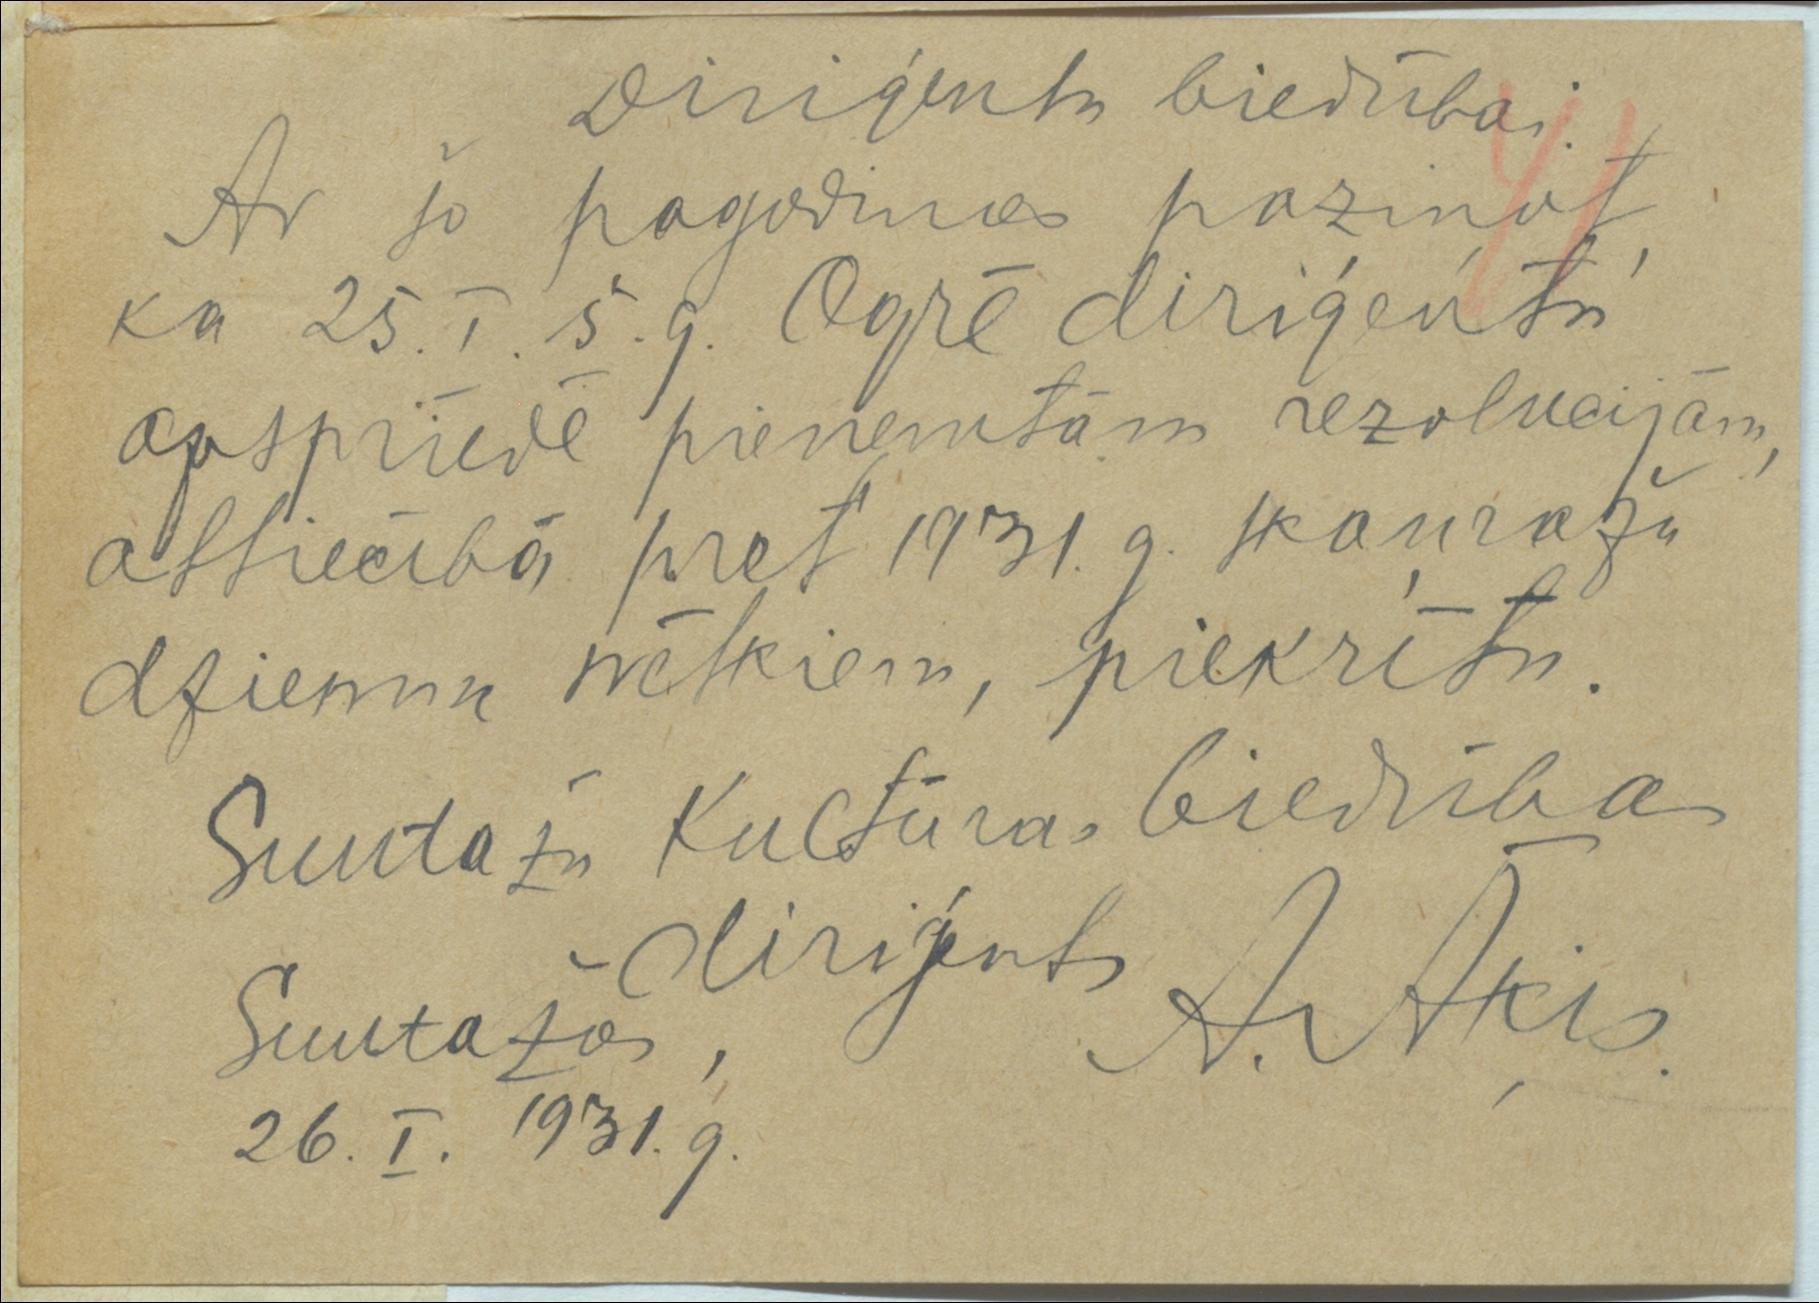 Diriģentu biedrībai.
Ar šo pagodinos paziņot,
ka 25. I. š. g. Ogrē diriģentu
apspriedē pieņemtām rezolucijām,
attiecībā pret 1931. g. skaņražu
dziesmu svētkiem, piekrītu.
Suntažu Kultūras biedrības
diriģents A. Āķis.
Suntažos,
26. I. 1931. g.